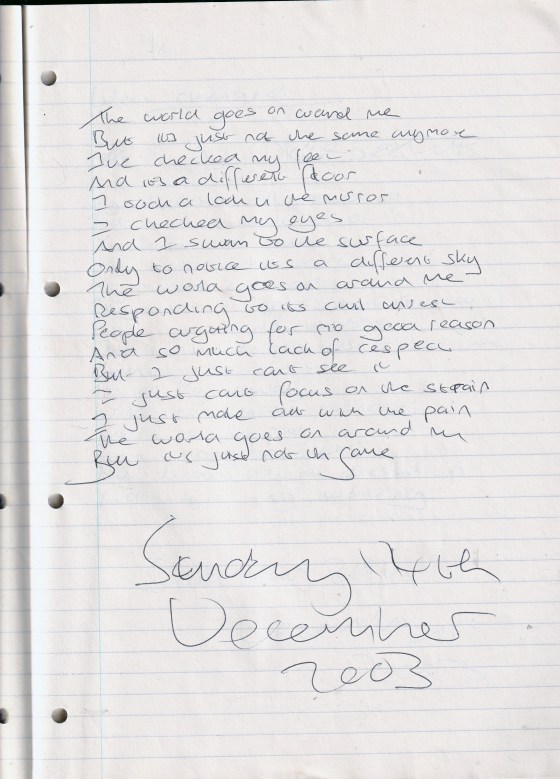 The world goes on around me
But its just not the same anymore
I've checked my feet
And its a different floor
I took a look in the mirror
I checked my eyes
And I swam to the surface
Only to notice its a different sky
The world goes on around me
Responding to its civil unrest
People arguing for no good reason
And so much lack of respect
But I just cant see it
I just cant focus on the strain
I just make out with the pain
The world goes on around me
But its just not the same
Sunday 14th
December
2003